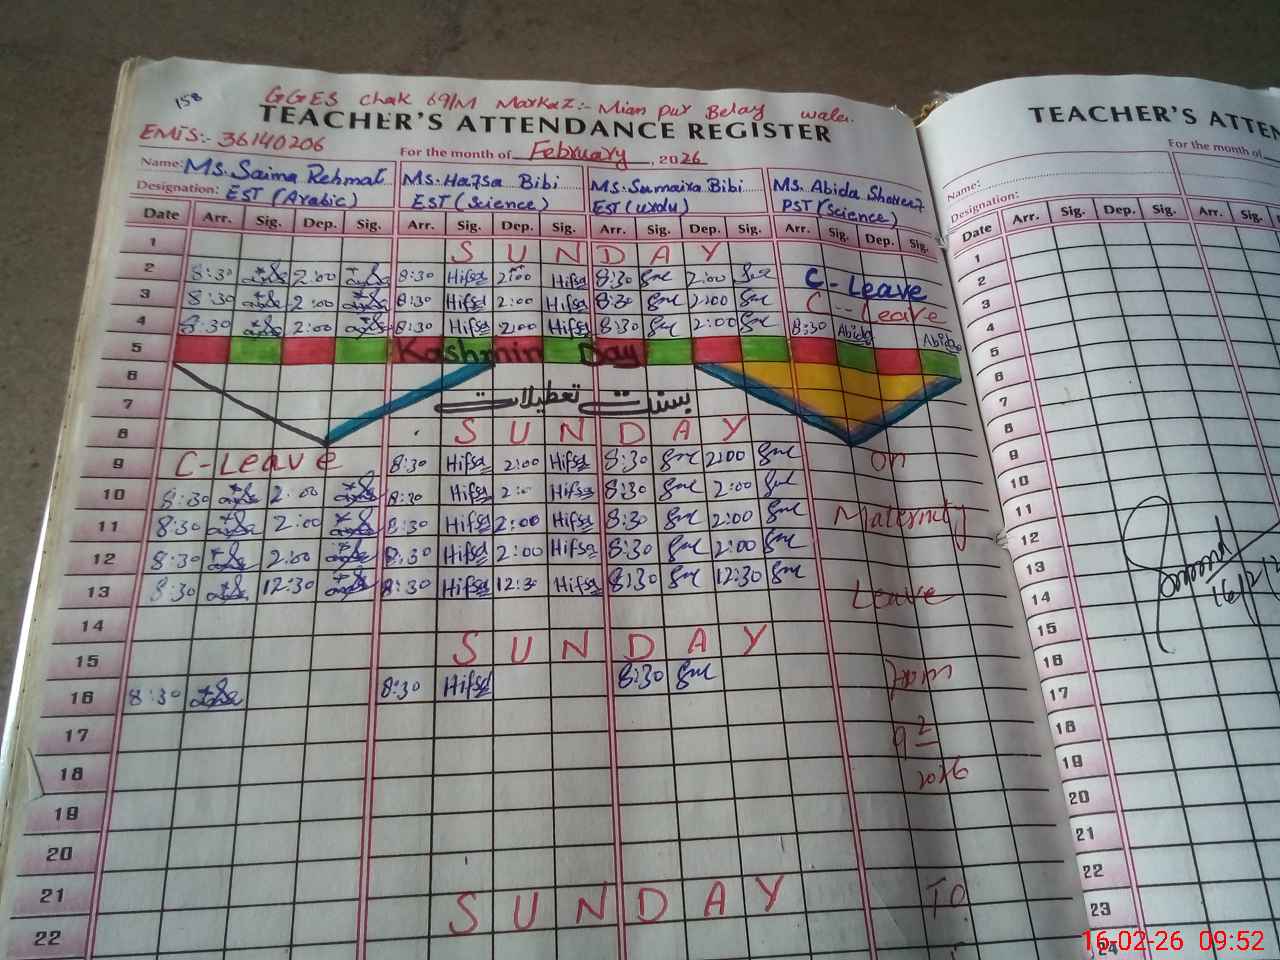 158
GGES Chak 69/M Markaz:- Mian pur Belay wala.
TEACHER'S ATTENDANCE REGISTER
EMIS:- 36140206
For the month of February, 2026
Name: Ms. Saima Rehmat Ms. Hafsa Bibi Ms. Sumaira Bibi Ms. Abida
Designation: EST (Arabic) EST (Science) EST (Urdu) PST (Science)
Date Arr. Sig. Dep. Sig. Arr. Sig. Dep. Sig. Arr. Sig. Dep. Sig. Arr. Sig. Dep. Sig.
1 SUNDAY
2 8:30 2:00 8:30 Hifsa 2:00 Hifsa 8:30 2:00 C-Leave
3 8:30 2:00 8:30 Hifsa 2:00 Hifsa 8:30 2:00 C-Leave
4 8:30 2:00 8:30 Hifsa 2:00 Hifsa 8:30 2:00 8:30 Abida Abida
5 Kashmir Day
6
7 بسنت تعطیلات
8 SUNDAY
9 C-Leave 8:30 Hifsa 2:00 Hifsa 8:30 2:00 On
10 8:30 2:00 8:30 Hifsa 2:00 Hifsa 8:30 2:00
11 8:30 2:00 8:30 Hifsa 2:00 Hifsa 8:30 2:00 Maternity
12 8:30 2:00 8:30 Hifsa 2:00 Hifsa 8:30 2:00
13 8:30 12:30 8:30 Hifsa 12:30 Hifsa 8:30 12:30 Leave
14
15 SUNDAY
16 8:30 8:30 Hifsa 8:30 From
17
18 9 2 2026
19
20
21
22 SUNDAY To
TEACHER'S ATTEN
For the month of
Name:
Designation:
Date Arr. Sig. Dep. Sig. Arr. Sig.
1
2
3
4
5
6
7
8
9
10
11
12
13
14 16/2/2
15
16
17
18
19
20
21
22
23
24
16-02-26 09:52